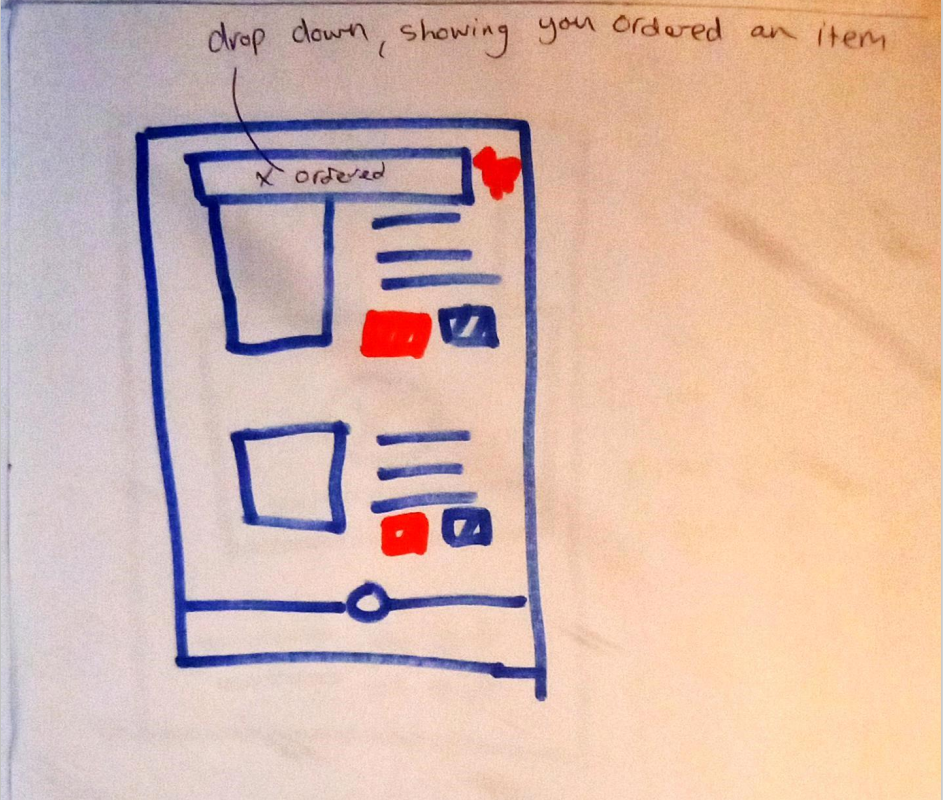 drop down, showing you ordered an item
x ordered